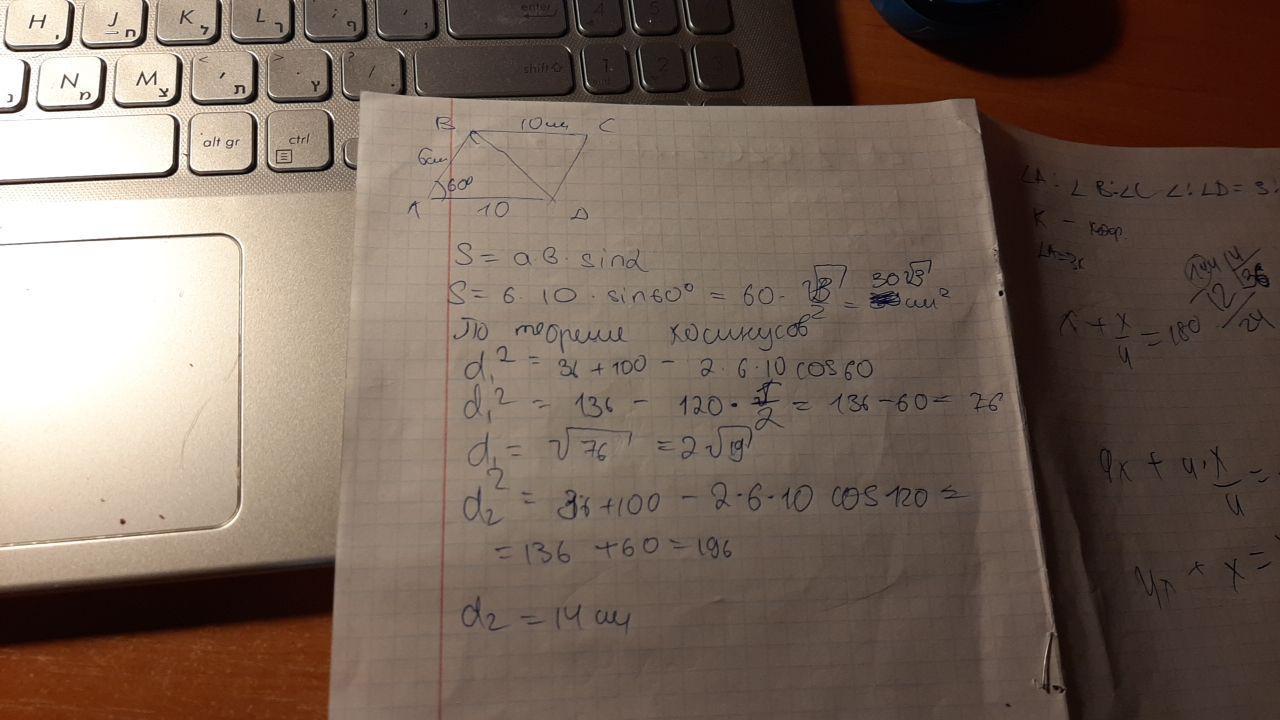 H J ח K ל L ך : ; ף " ' , enter 4 5
N מ M צ < , ת > . ץ ? / . shift 1 2 3
alt gr ctrl
B 10см C
6см
60°
A 10 D
S = a·B·sinα
S = 6·10·sin60° = 60·√3/2 = 30√3 см²
По теореме косинусов
d₁² = 36+100 - 2·6·10 cos60
d₁² = 136 - 120·1/2 = 136-60 = 76
d₁ = √76 = 2√19
d₂² = 36+100 - 2·6·10 cos120 =
= 136 +60 = 196
d₂ = 14 см
∠A: ∠B:∠C:∠D = 3:
K - коэф.
∠A=3x
144 4
12 36
24
x + x/4 = 180
4x + 4·x/4 =
4x + x =